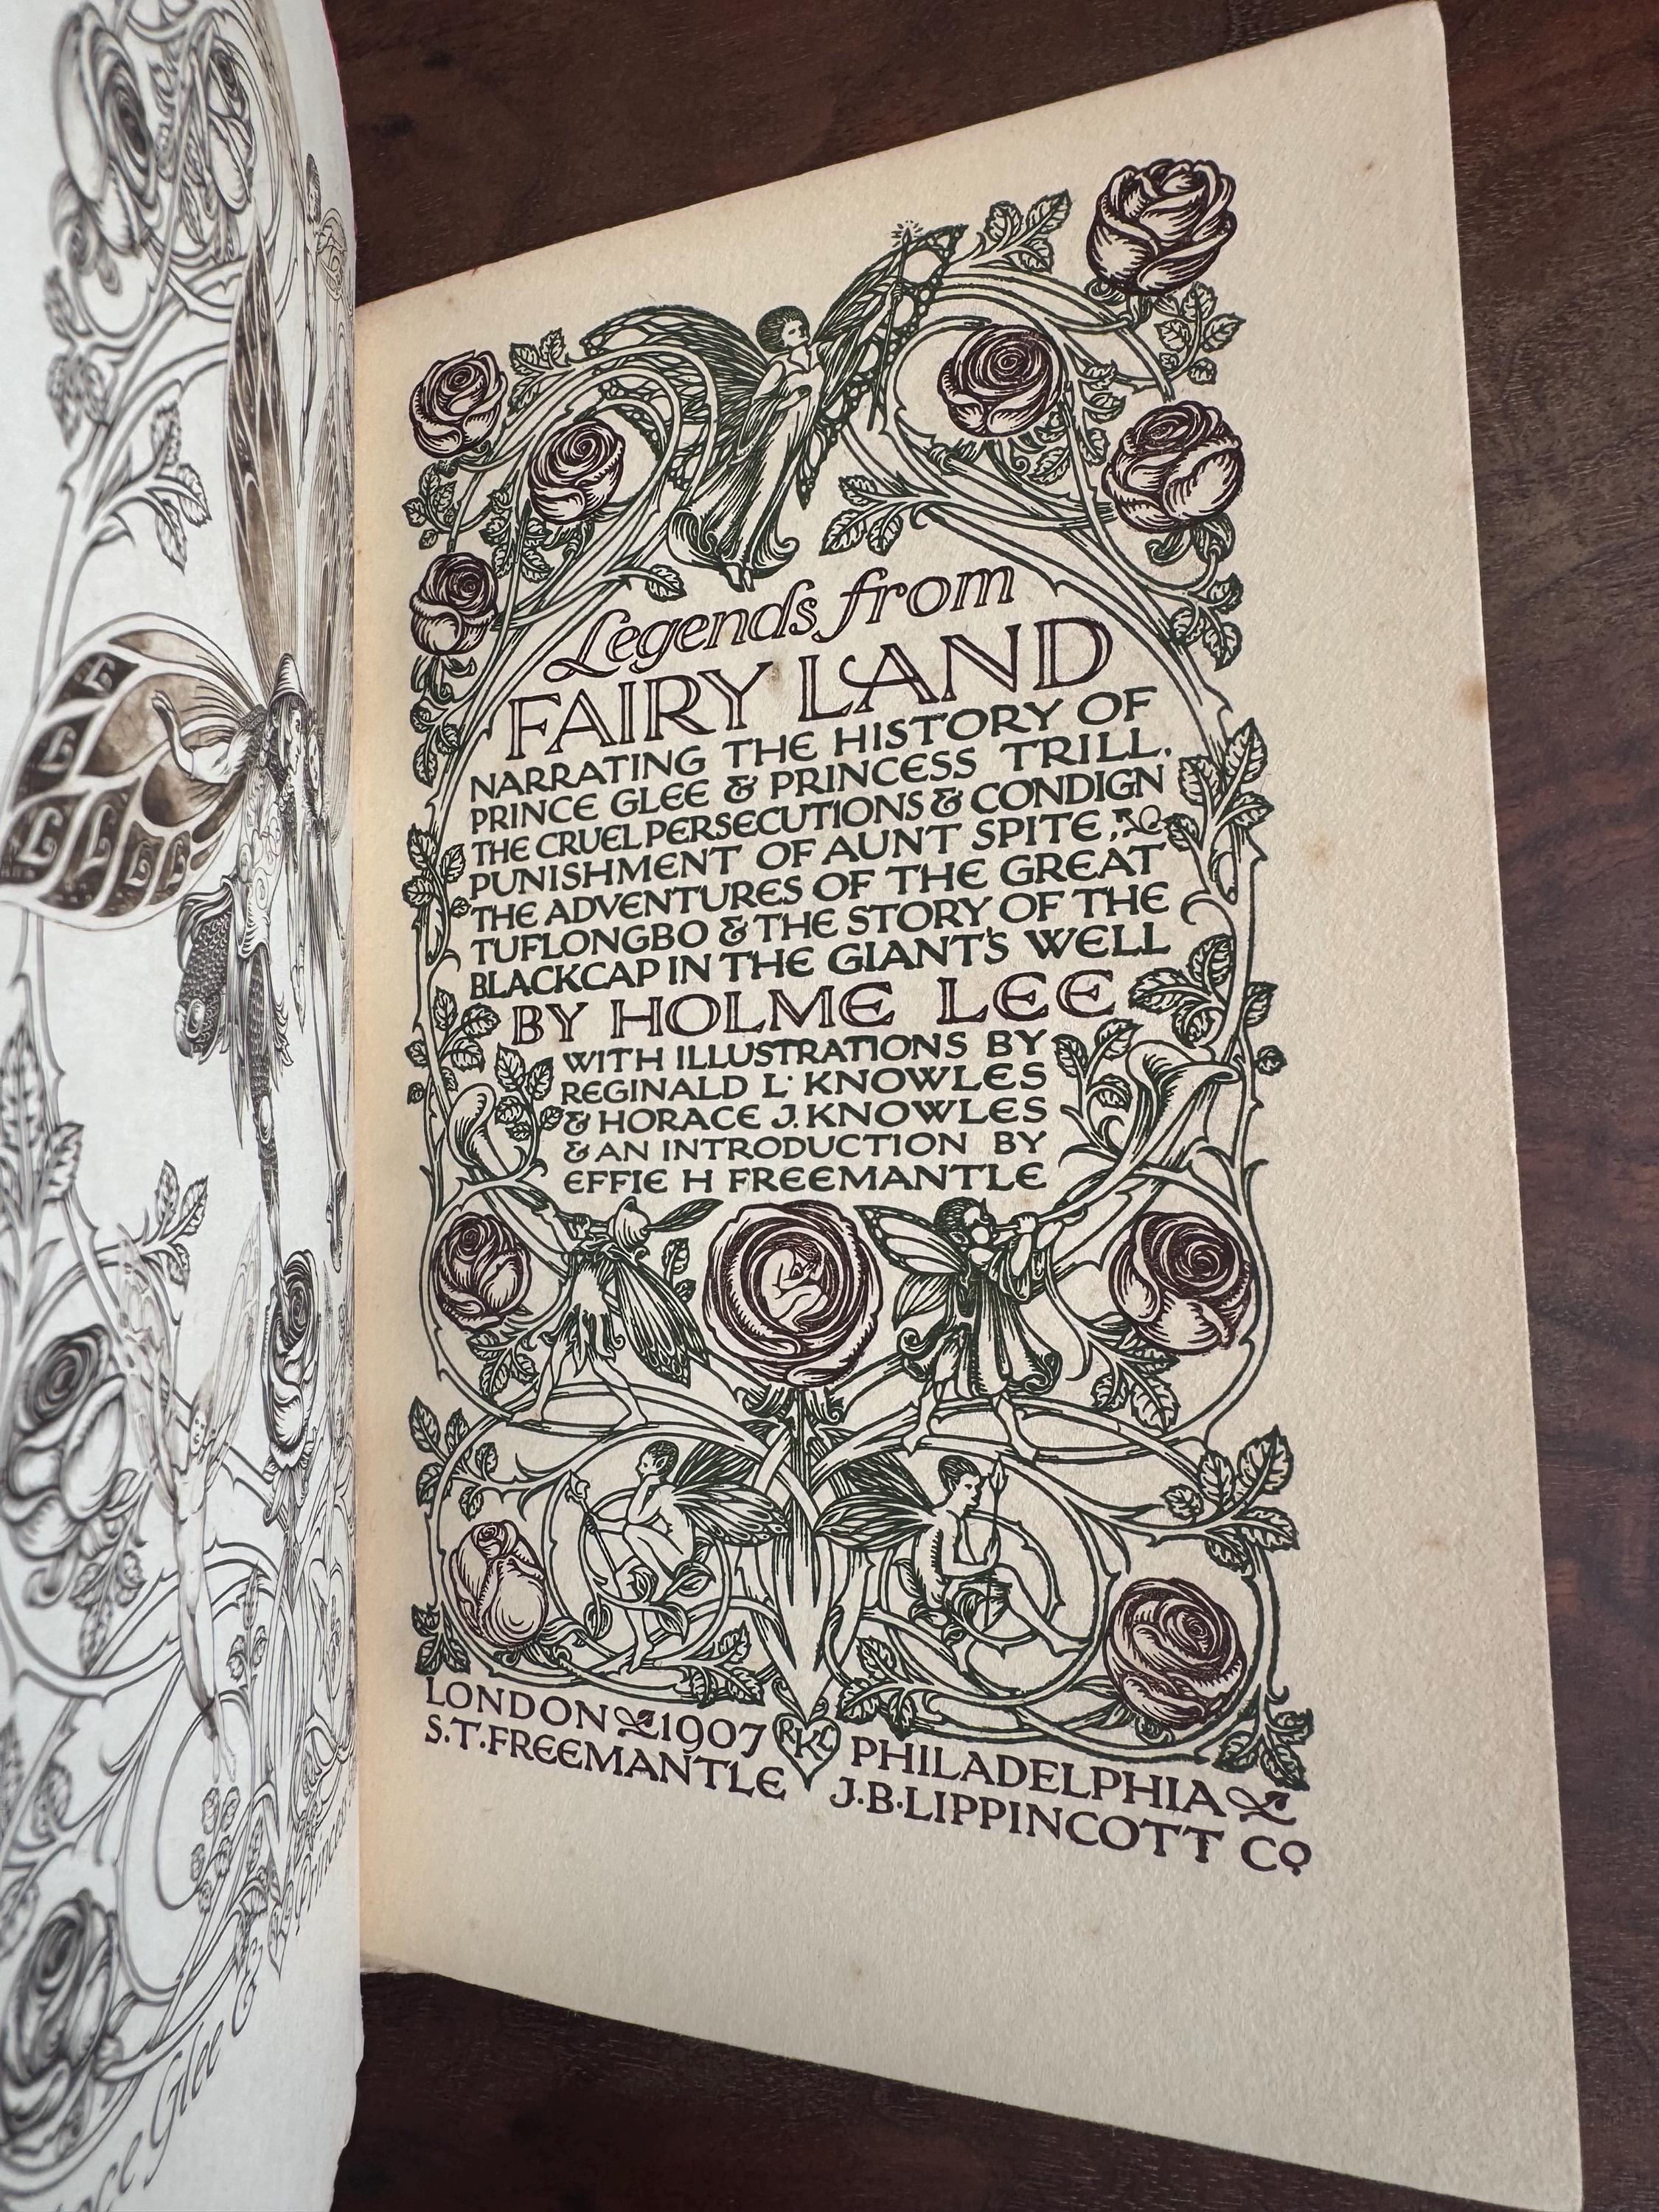 Legends from
FAIRY LAND
NARRATING THE HISTORY OF
PRINCE GLEE & PRINCESS TRILL.
THE CRUEL PERSECUTIONS & CONDIGN
PUNISHMENT OF AUNT SPITE,
THE ADVENTURES OF THE GREAT
TUFLONGBO & THE STORY OF THE
BLACKCAP IN THE GIANT'S WELL
BY HOLME LEE
WITH ILLUSTRATIONS BY
REGINALD L. KNOWLES
& HORACE J. KNOWLES
& AN INTRODUCTION BY
EFFIE H FREEMANTLE
LONDON 1907
S.T. FREEMANTLE
RLK
PHILADELPHIA
J.B. LIPPINCOTT Co
Glee &